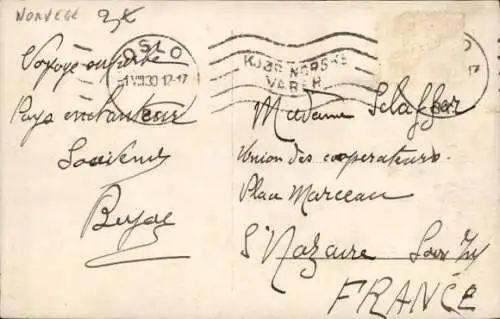 NORVEGE
OSLO
1 VIII 30 12-17
KJØP NORSKE
VARER
17
Voyage superbe
Pays enchanteur
Souvenir
Madame
Union des cooperateurs.
Place Marceau
St Nazaire Loire Inf
FRANCE